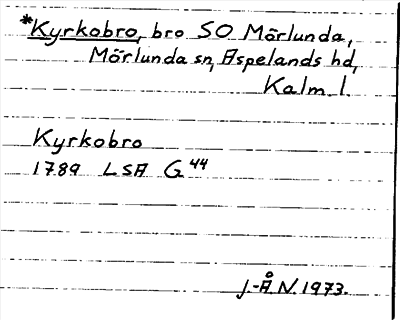 *Kyrkobro, bro SO Mörlunda,
Mörlunda sn, Aspelands hd,
Kalm. l.
Kyrkobro
1789 LSA G 44
J.-Å.N. 1973.